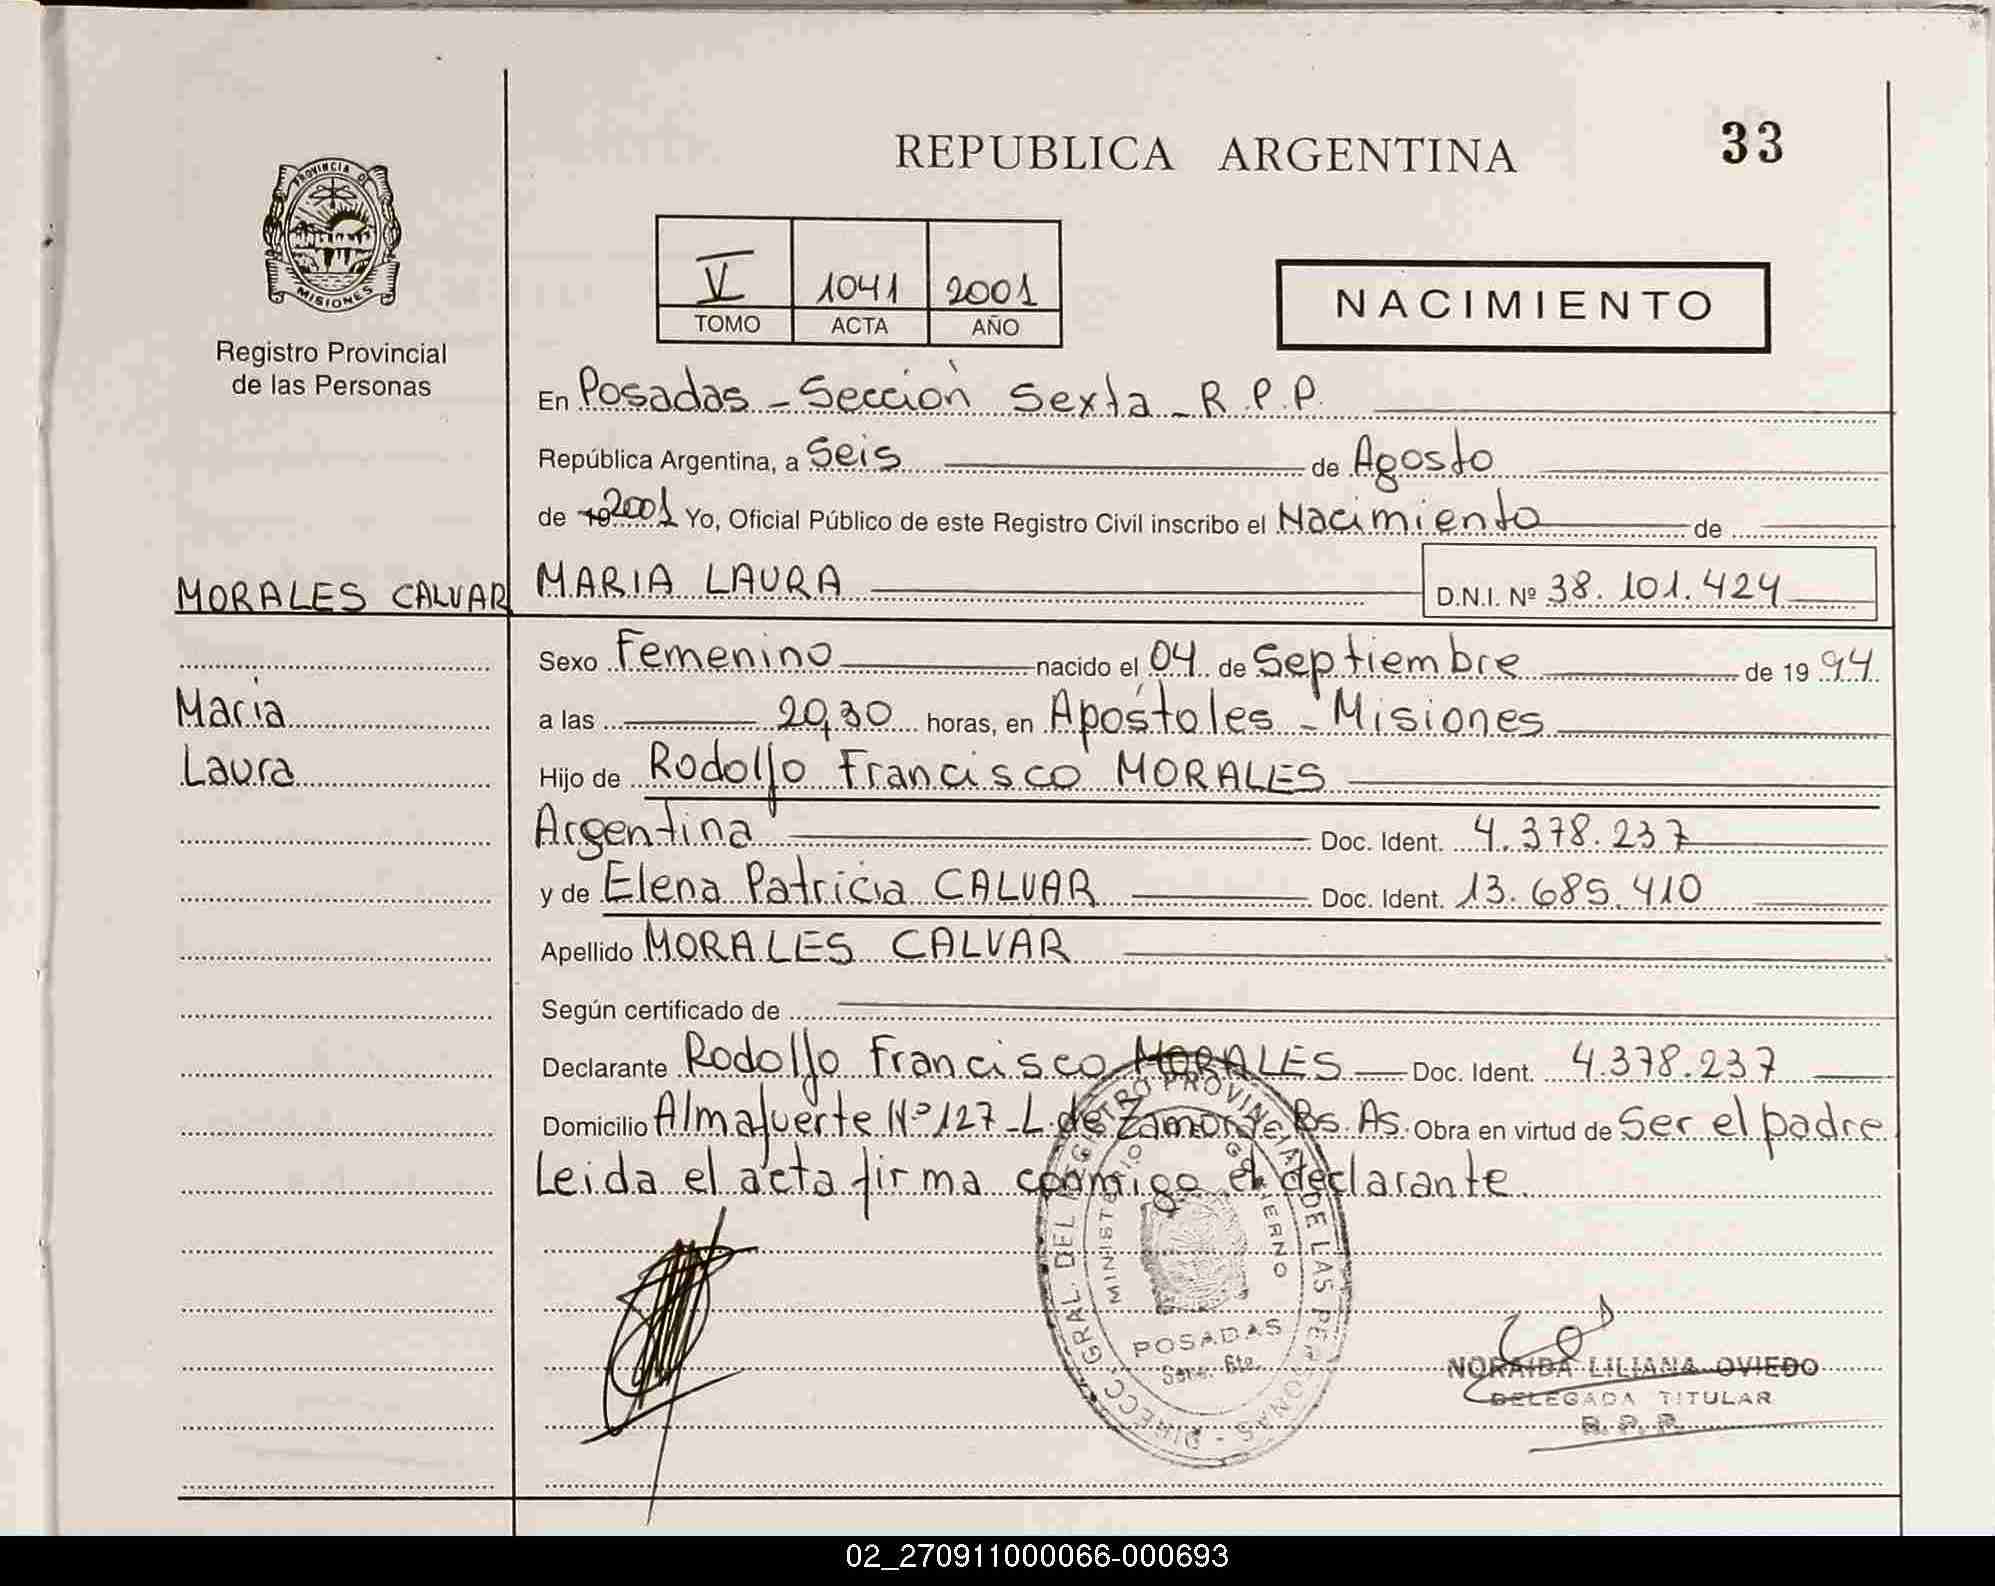 REPUBLICA ARGENTINA
33
PROVINCIA DE
MISIONES
Registro Provincial
de las Personas
V 1041 2001
TOMO ACTA AÑO
NACIMIENTO
En Posadas - Sección Sexta - R.P.P.
República Argentina, a Seis de Agosto
de 19 2001 Yo, Oficial Público de este Registro Civil inscribo el Nacimiento de
MORALES CALVAR MARIA LAURA D.N.I. Nº 38.101.424
Sexo Femenino nacido el 04 de Septiembre de 19 94
Maria
a las 20,30 horas, en Apóstoles - Misiones
Laura
Hijo de Rodolfo Francisco MORALES
Argentina Doc. Ident. 4.378.237
y de Elena Patricia CALVAR Doc. Ident. 13.685.410
Apellido MORALES CALVAR
Según certificado de
Declarante Rodolfo Francisco MORALES Doc. Ident. 4.378.237
Domicilio Almafuerte Nº 127 - L. de Zamora - Bs. As. Obra en virtud de Ser el padre
Leida el acta firma conmigo el declarante.
DIRECC. GRAL. DEL REGISTRO PROVINCIAL DE LAS PERSONAS -
MINISTERIO GOBIERNO
POSADAS
Secc. 6ta.
NORAIDA LILIANA OVIEDO
DELEGADA TITULAR
R. P. P.
02_270911000066-000693